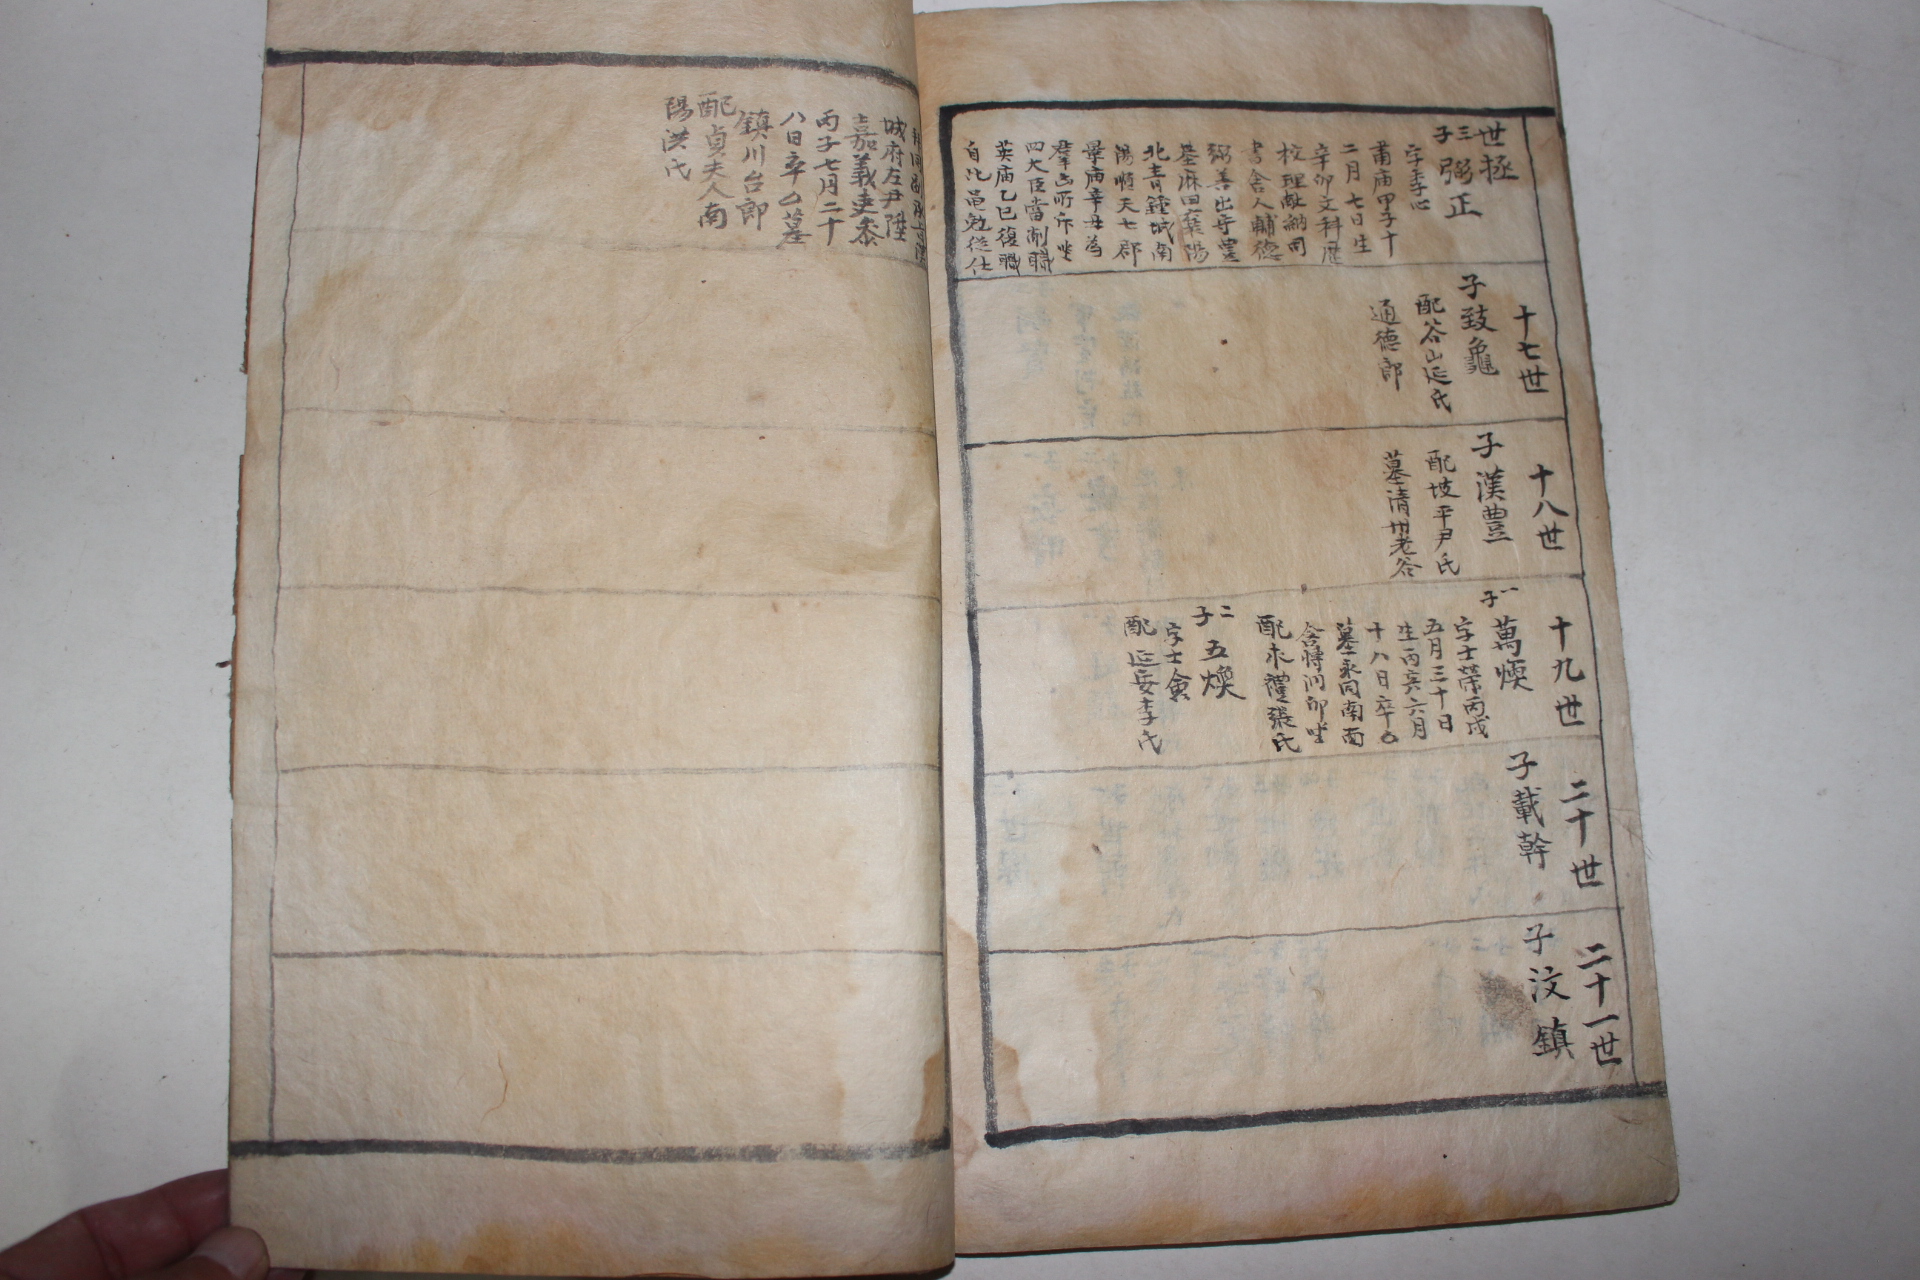 世拯
三子 弼正
字季心
肅庙甲子十
二月七日生
辛卯文科歷
校理献納司
書舍人輔德
弼善出守豊
基麻田襄陽
北青鐘城南
陽順天七郡
景庙辛丑為
羣凶所斥坐
四大臣當削職
英庙乙巳復職
自北邑勉從仕
十七世
子致龜
配谷山延氏
通德郎
十八世
子漢豊
配坡平尹氏
墓清州老谷
十九世
一子 萬煐
字士榮丙戌
五月三十日
生丙亥六月
十八日卒
墓永同南面
配永禮張氏
二子 五煥
字士會
配延安李氏
二十世
子載幹
二十一世
子汶鎮
城府左尹陞
嘉義吏叅
丙子七月二十
八日卒 墓
鎮川台郎
配貞夫人南
陽洪氏